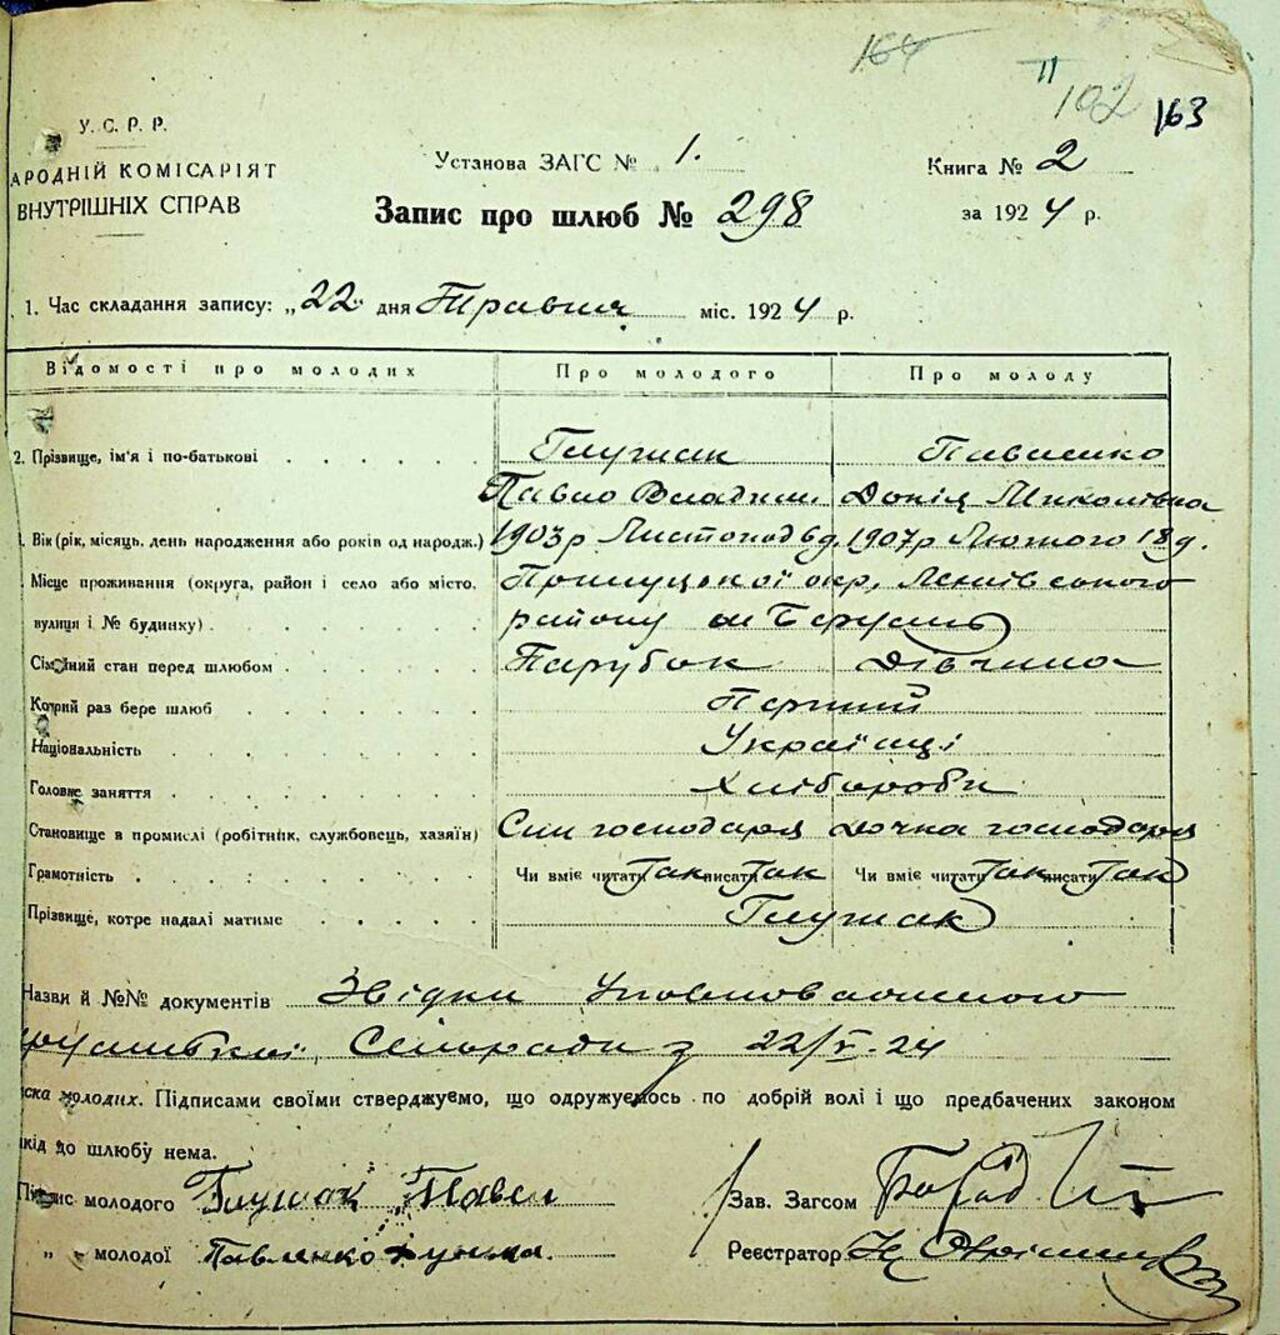 164
11
102 163
У. С. Р. Р.
АРОДНІЙ КОМІСАРІЯТ
ВНУТРІШНІХ СПРАВ
Установа ЗАГС № 1.
Книга № 2
Запис про шлюб № 298
за 1924 р.
1. Час складання запису: „22" дня Травня міс. 1924 р.
Відомості про молодих Про молодого Про молоду
2. Прізвище, ім'я і по-батькові Глушак Павленко
Павло Владим. Докія Миколівна
Вік (рік, місяць, день народження або років од народж.) 1903р Листопод 6д. 1907р Лютого 18д.
Місце проживання (округа, район і село або місто, Прилуцької окр,
вулиця і № будинку) району
Сімейний стан перед шлюбом Парубок Дівчина
Котрий раз бере шлюб Перший
Національність Українці
Головне заняття Хлібороби
Становище в промислі (робітник, службовець, хазяїн) Син господаря Дочка господаря
Грамотність Чи вміє читати Так писати Так Чи вміє читати Так писати Так
Прізвище, котре надалі матиме Глушак
Назви й №№ документів Звідки Уповноваженого
Сільради з 22/V-24
ска молодих. Підписами своїми стверджуємо, що одружуємось по добрій волі і що предбачених законом
кід до шлюбу нема.
Підпис молодого Глушак Павел
Зав. Загсом
„ молодої Павленко
Реєстратор